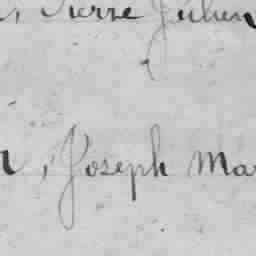 Pierre Julien
, Joseph Mar